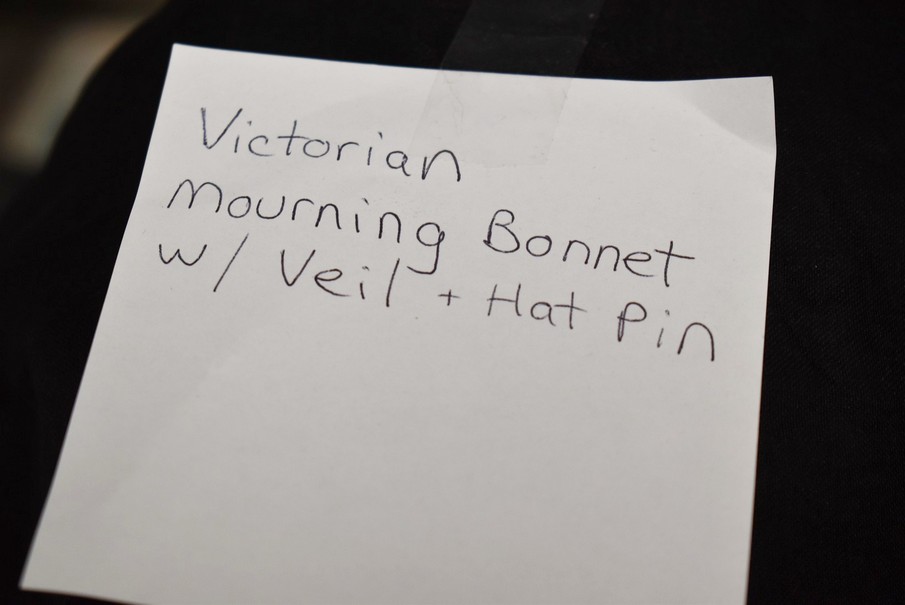 Victorian
Mourning Bonnet
w/ Veil + Hat Pin